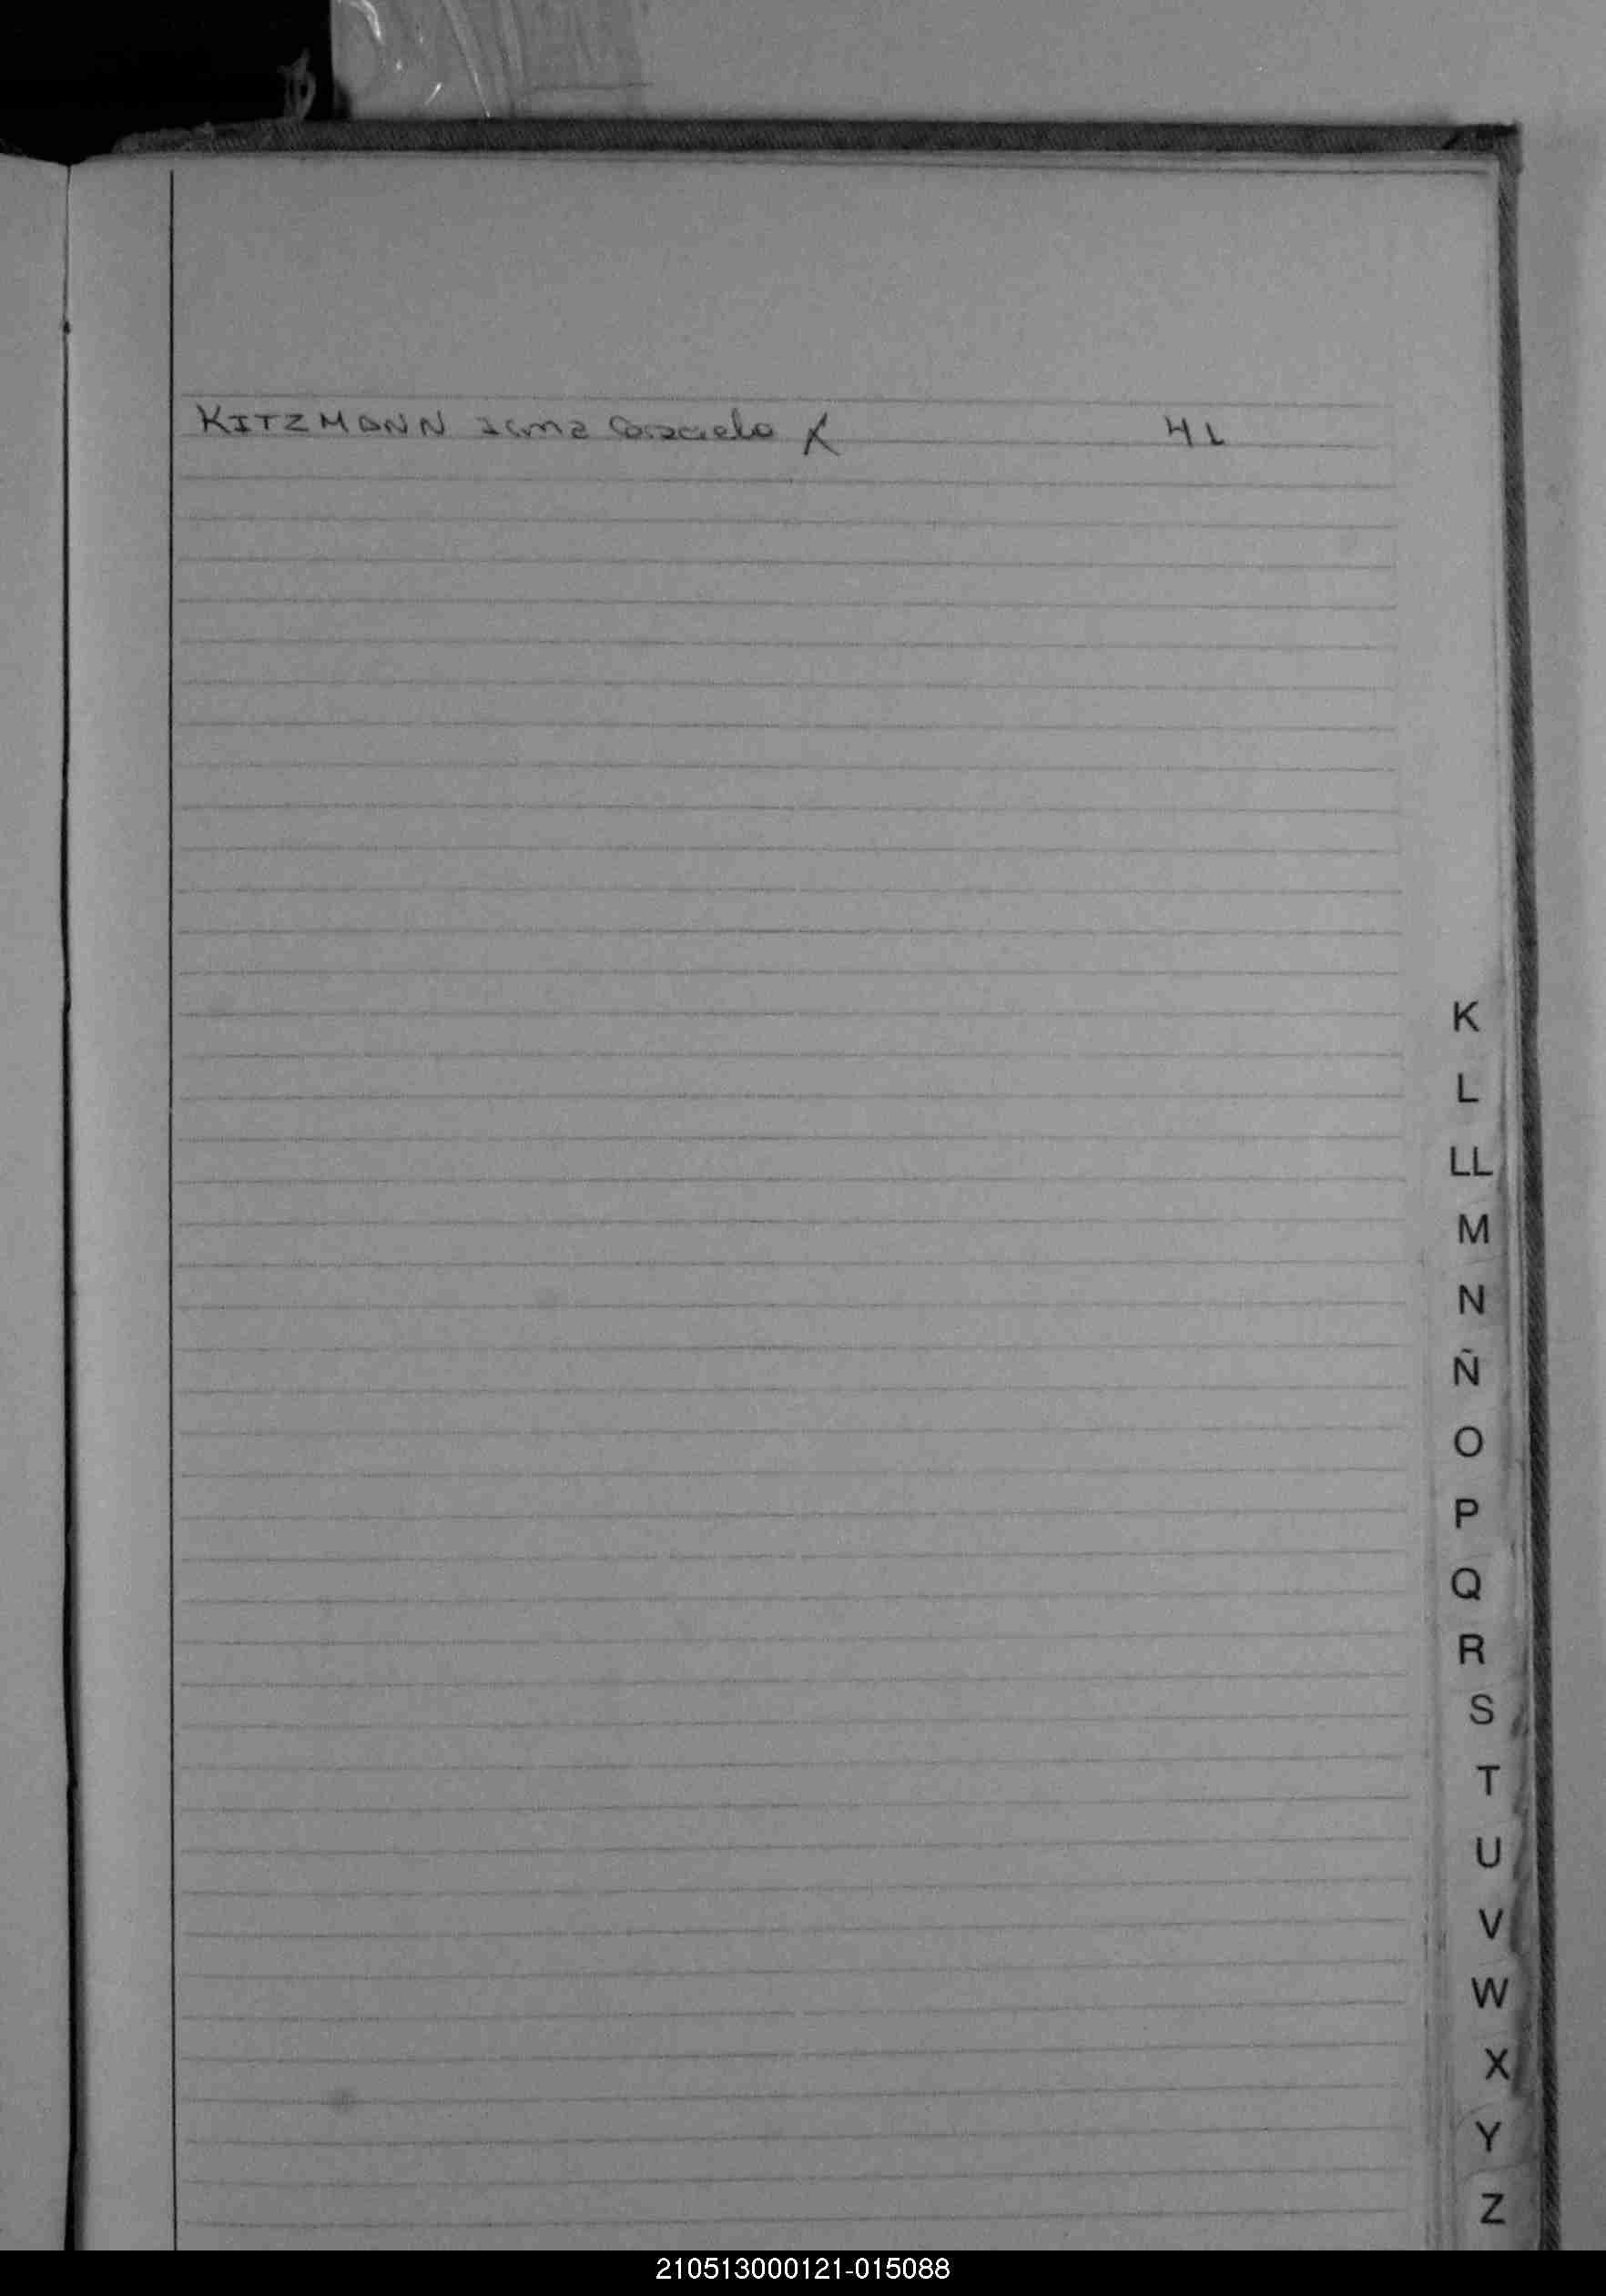 KITZMANN Irma Graciela X 41
K
L
LL
M
N
Ñ
O
P
Q
R
S
T
U
V
W
X
Y
Z
210513000121-015088